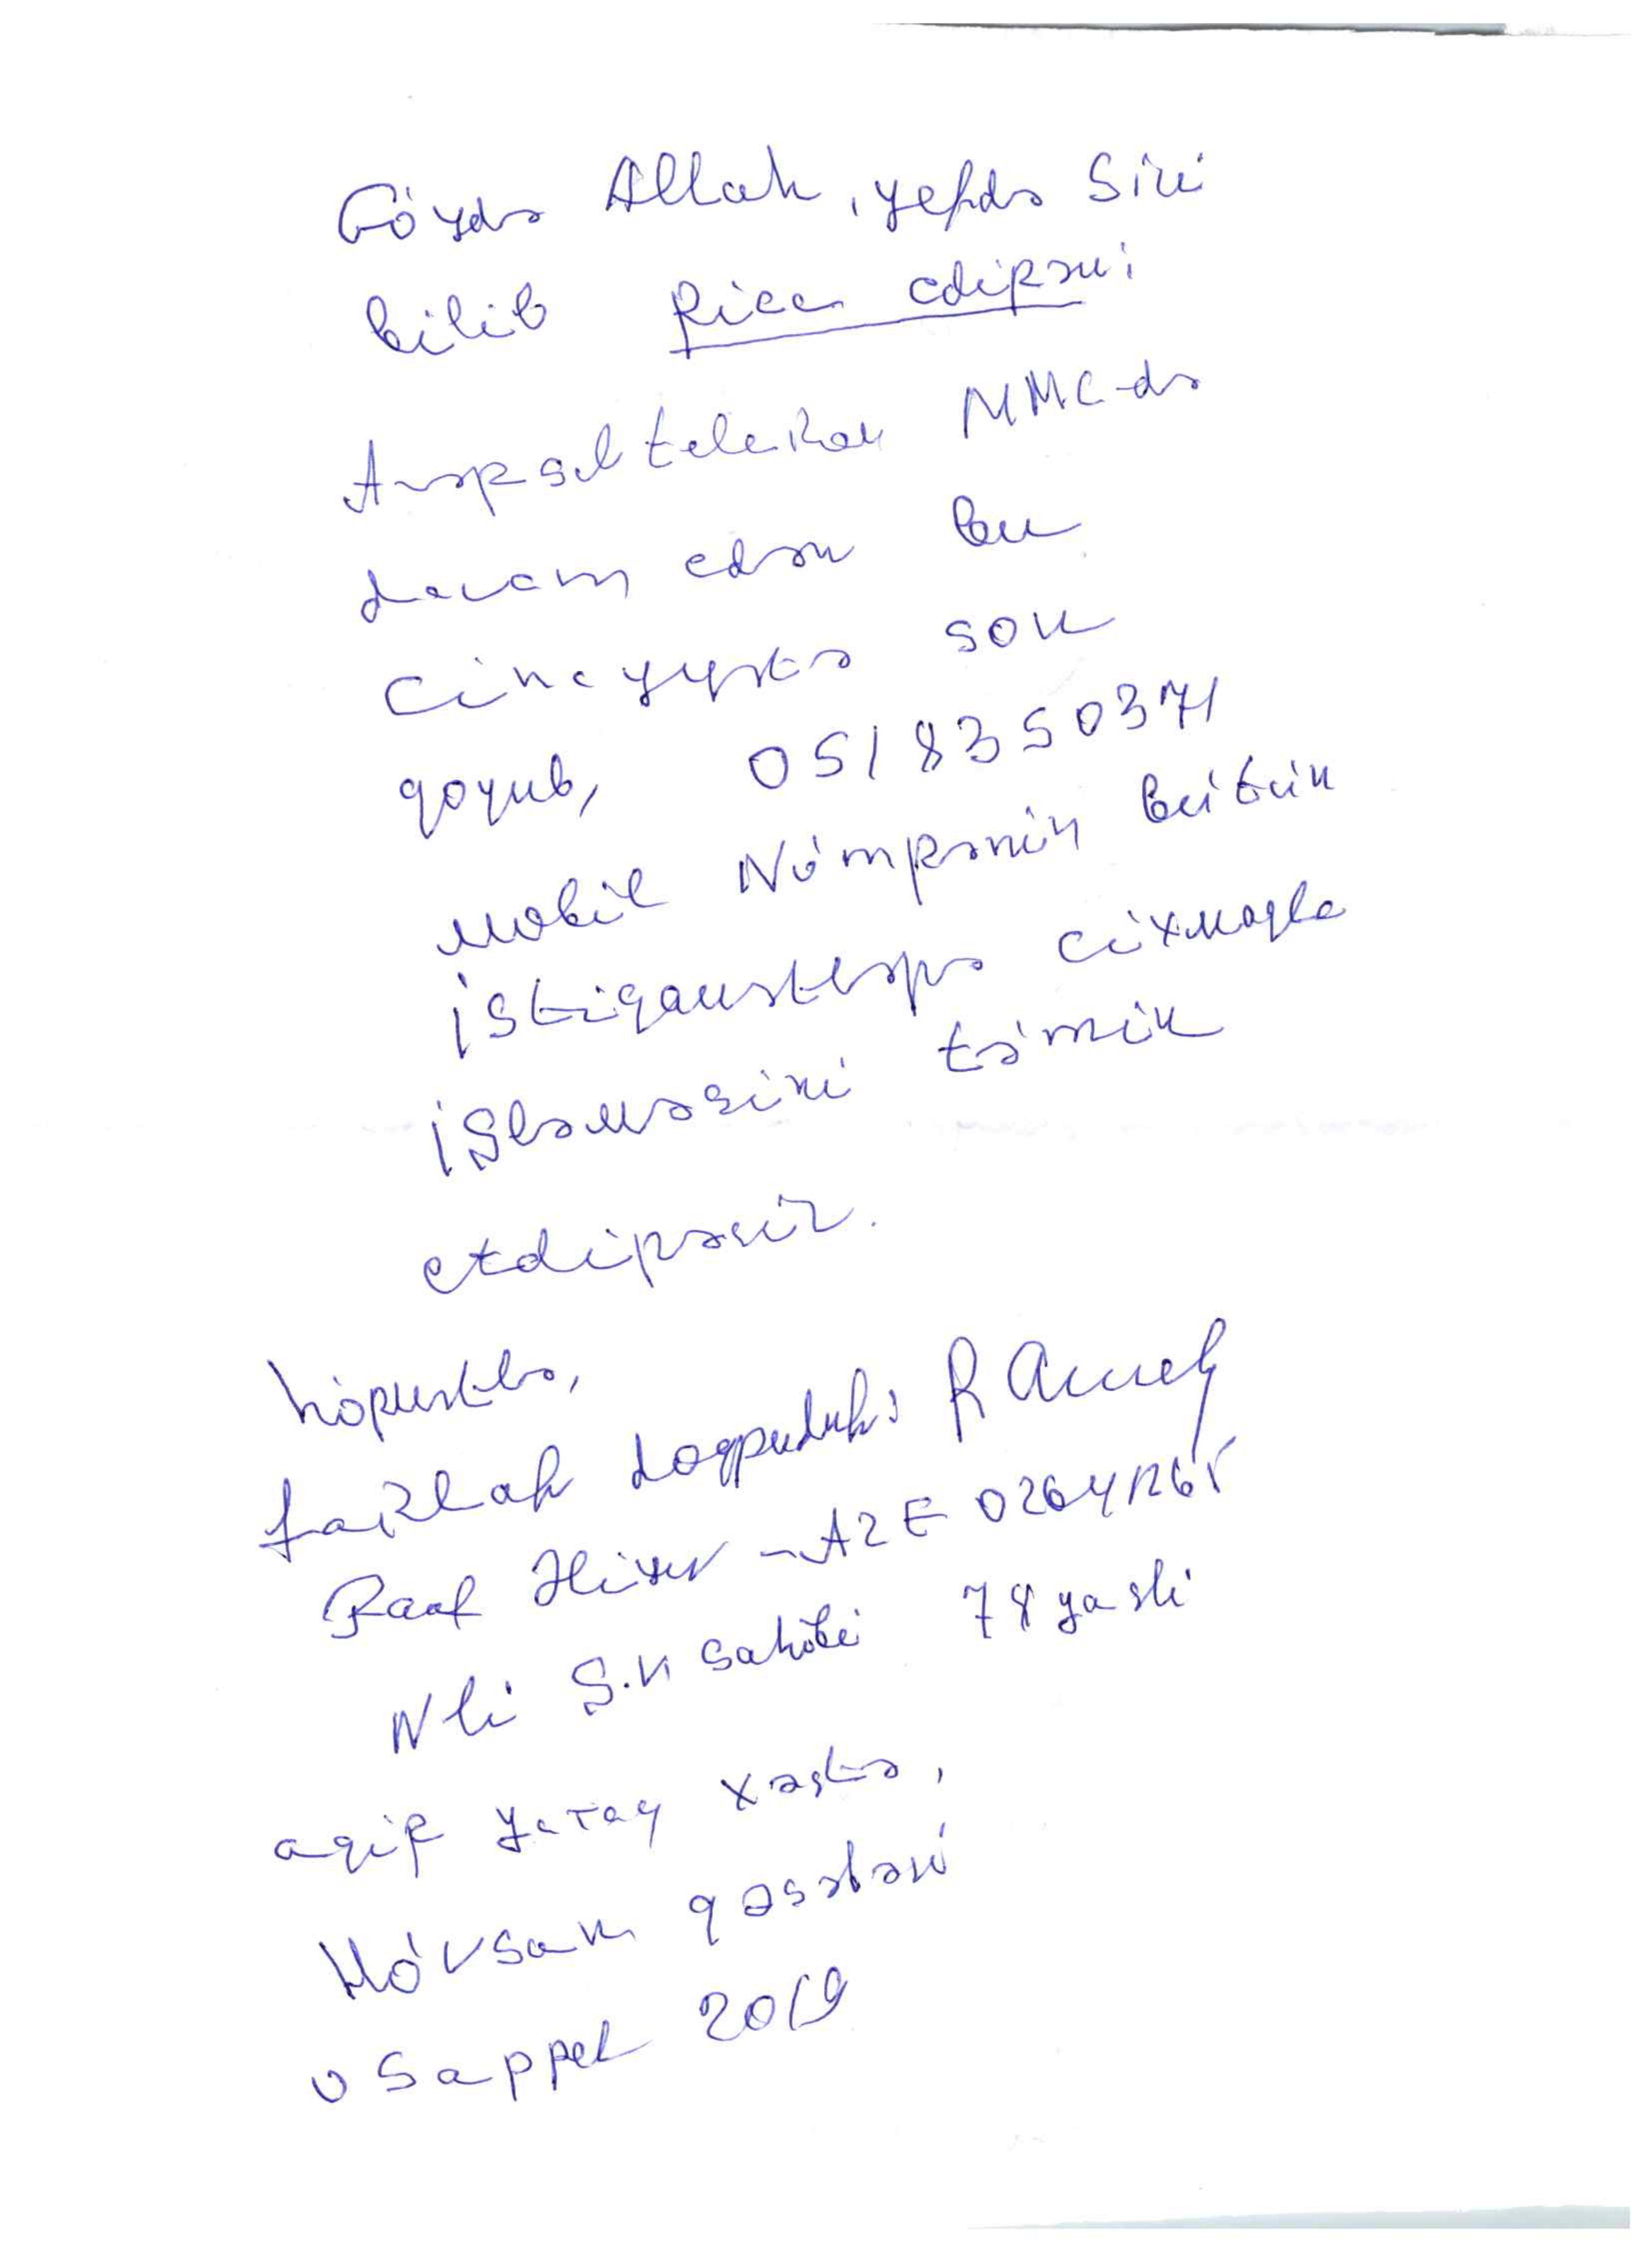 Göydə Allah, yerdə Sizi
bilib Rica edirəm:
Azərseltelekom MMC-də
davam edən bu
cinayətə son
qoyub, 0518350371
mobil Nömrənin bütün
istiqamətlərə cıxmaqla
işləməsini təmin
etdirəsiz.
hörmətlə,
fərzah doqquduk:
Rauf Əliyev - AZE 02641265
Nli Ş.V Sahibi 78 yaşlı
ağır yataq xəstə,
Hövsan qəsəbəsi
2019